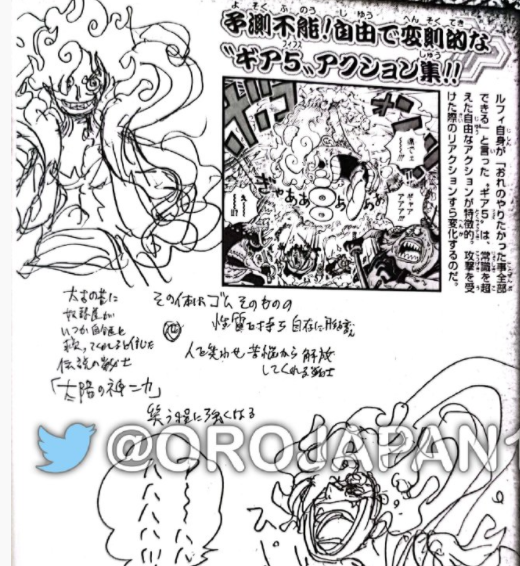 予測不能!自由で変則的な
“ギア5”アクション集!!
ルフィ自身が「おれのやりたかった事全部
できる」と言った“ギア5”は、常識を超
えた自由なアクションが特徴的。攻撃を受
けた際のリアクションすら変化するのだ。
太古の昔に
奴隷達が
いつか自分達を
救ってくれると信じた
伝説の戦士
「太陽の神ニカ」
その体はゴムそのものの
性質を持ち自在に
人を笑わせ苦悩から解放
してくれる戦士
笑う程に強くなる
@OROJAPAN